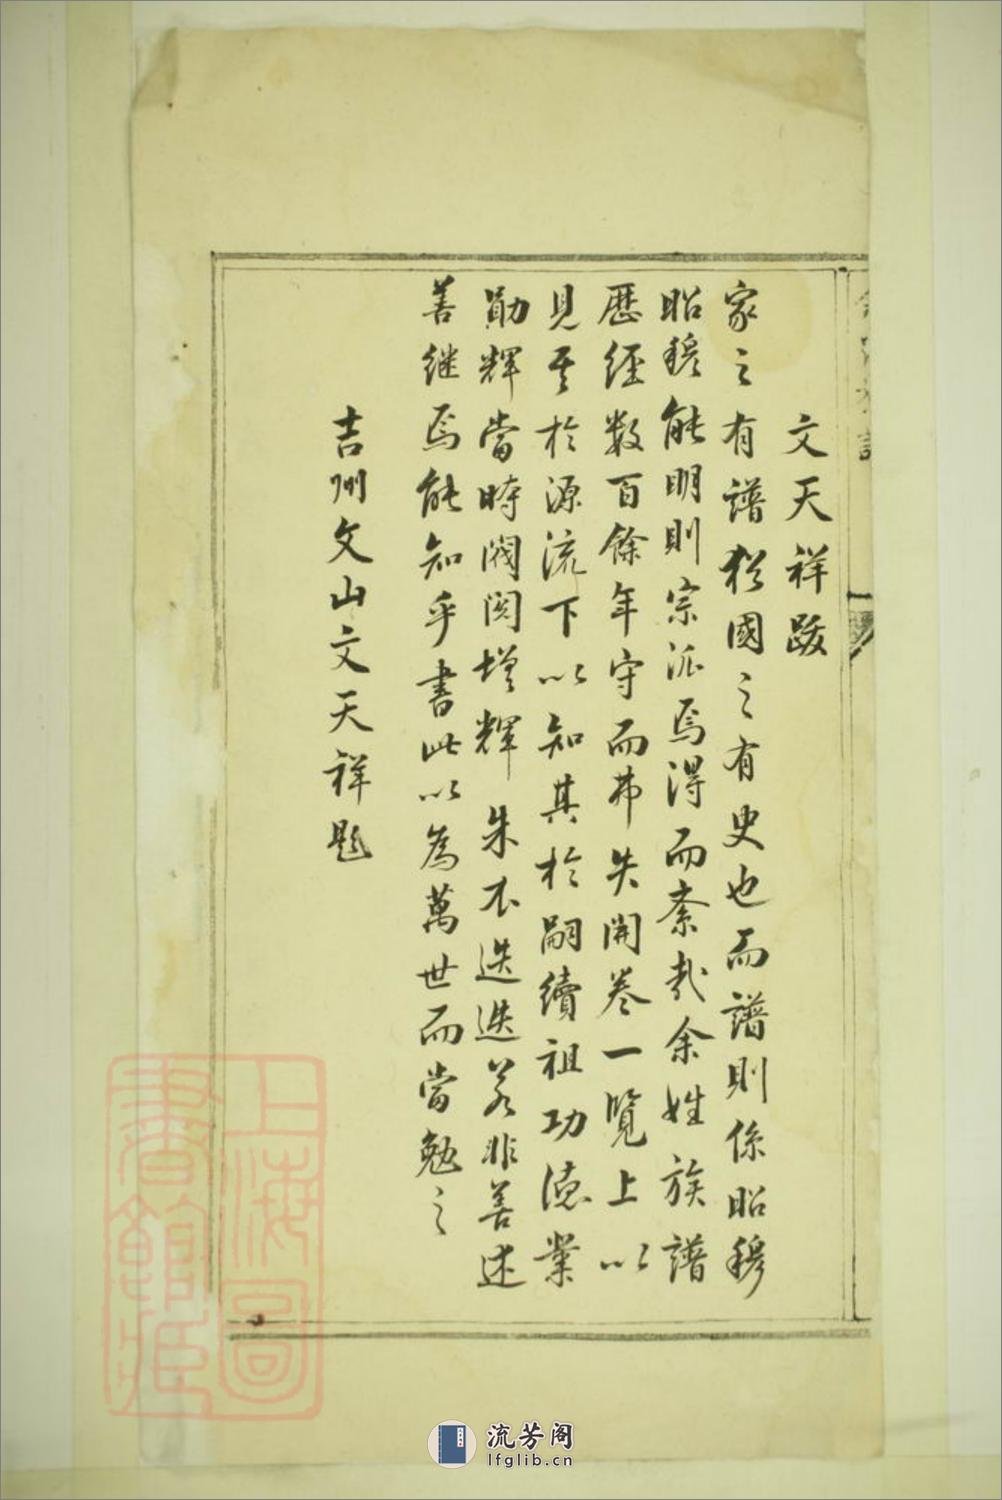 文天祥跋
家之有譜猶國之有史也而譜則係昭穆
昭穆能明則宗派焉得而紊哉余姓族譜
歷經數百餘年守而弗失開卷一覽上以
見其於源流下以知其於嗣續祖功德業
勛輝當時閥閱增輝朱衣迭迭若非善述
善继焉能知乎書此以為萬世而當勉之
吉州文山文天祥題
上海圖書館藏
流芳阁
lfglib.cn